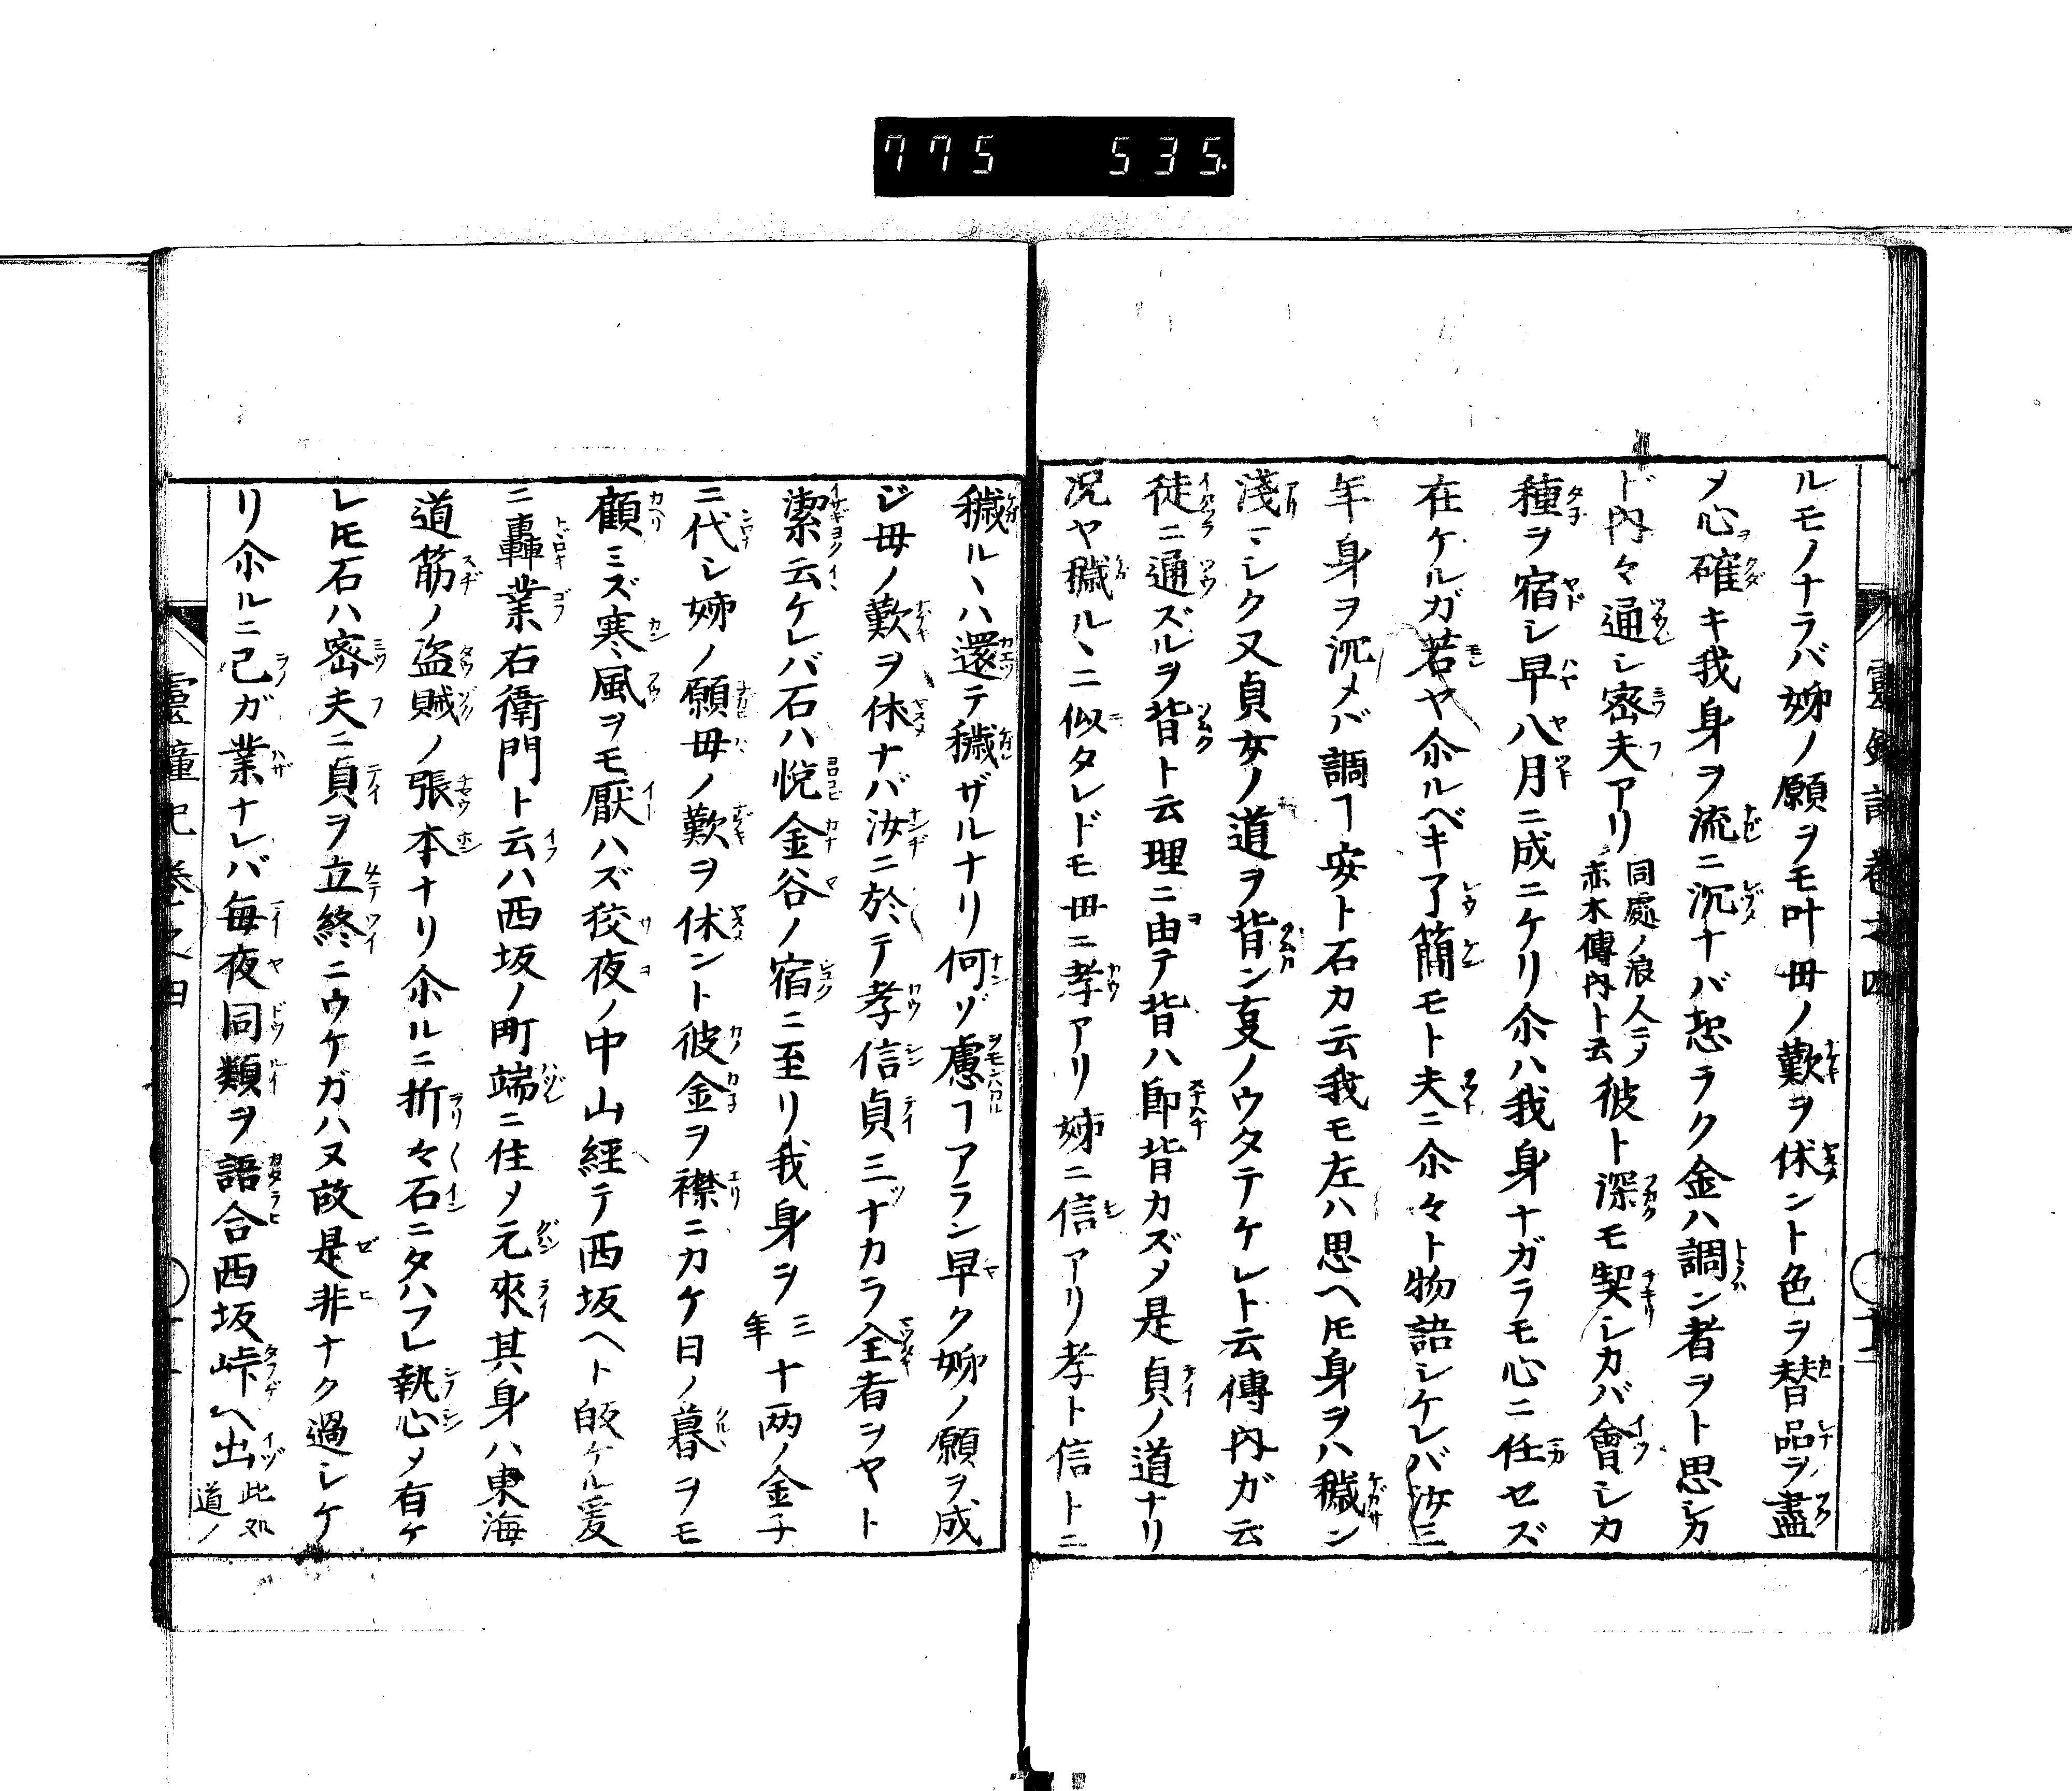 775 535.
ルモノナラバ姉ノ願ヲモ叶母ノ歎ヲ休ント色ヲ替品ヲ盡
メ心確キ我身ヲ流ニ沉ナバ恐ラク金ハ調ン者ヲト思シカ
ド內々通シ密夫アリ同處ノ浪人ニノ赤木傳內ト云彼ト深モ契シカバ會シカ
種ヲ宿シ早八月ニ成ニケリ尒ハ我身ナガラモ心ニ任セズ
在ケルガ若ヤ尒ルベキ了簡モト夫ニ尒々ト物語シケレバ汝三
年身ヲ沉メバ調ヿ安ト石カ云我モ左ハ思ヘ𪜈身ヲハ穢ン
淺ミシク又貞女ノ道ヲ背ン㕝ノウタテケレト云傳內ガ云
徒ニ通ズルヲ背ト云理ニ由テ背ハ卽背カズメ是貞ノ道ナリ
况ヤ穢ルヽニ似タレドモ毋ニ孝アリ姉ニ信アリ孝ト信トニ
穢ルヽハ還テ穢ザルナリ何ゾ慮ヿアラン早ク姉ノ願ヲ成
ジ毋ノ歎ヲ休ナバ汝ニ於テ孝信貞三ナカラ全者ヲヤト
潔云ケレバ石ハ悅金谷ノ宿ニ至リ我身ヲ三年十两ノ金子
ニ代シ姉ノ願毋ノ歎ヲ休ント彼金ヲ襟ニカケ日ノ暮ヲモ
顧ミズ寒風ヲモ厭ハズ狡夜ノ中山經テ西坂ヘト皈ケル爰
ニ轟業右衛門ト云ハ西坂ノ町端ニ住メ元來其身ハ東海
道筋ノ盜賊ノ張本ナリ尒ルニ折々石ニタハフレ執心メ有ケ
レ𪜈石ハ密夫ニ貞ヲ立終ニウケガハヌ故是非ナク過シケ
リ尒ルニ己ガ業ナレバ每夜同類ヲ語合西坂峠ヘ出此処道ノ